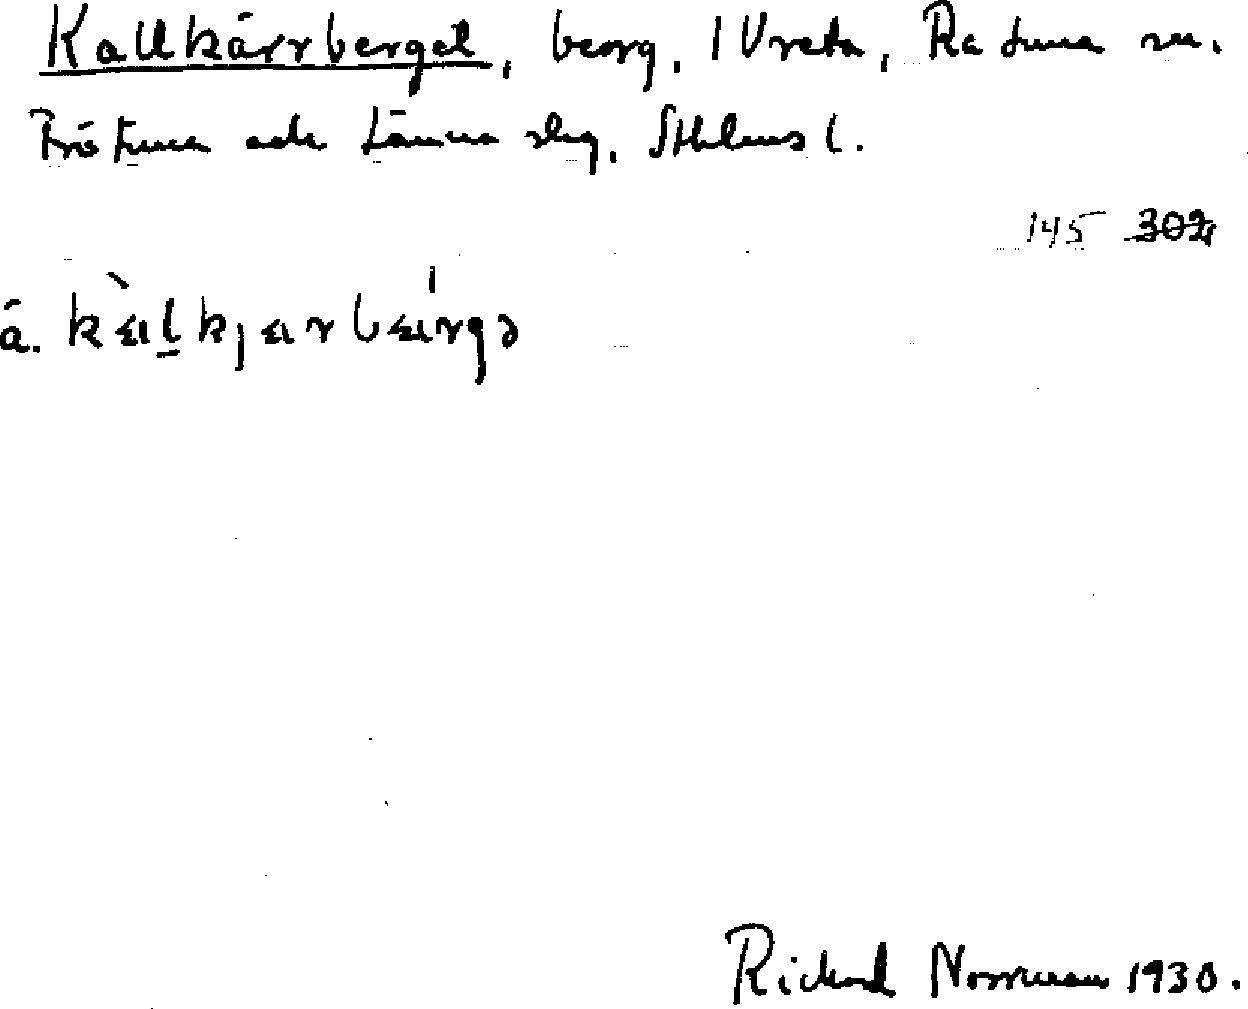 Kallkärrberget, berg, 1 Vreta, Ratuna sn.
Frötuna och Länna slg, Sthlms l.
145 302
å. kàlkjarbárgə
Rickard Norrman 1930.